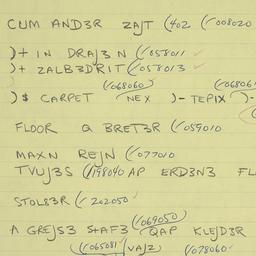 CUM AND3R ZAJT (402 (✓008020
)+ IN DRAJ3N (✓058011 ✓
)+ ZALB3DRIT (✓058013 ✓
(✓068060) (✓06806
)$ CARPET NEX )- TEPIX )-
FLOOR a BRET3R (✓059010
MAXN REJN (✓077010
TVUJ3S (✓198090 AP ERD3N3 FL
STOL83R (✓202050
(✓069050)
A GREJS3 STAF3 QAP KLEJD3R
(✓065081 VAJZ (✓078060